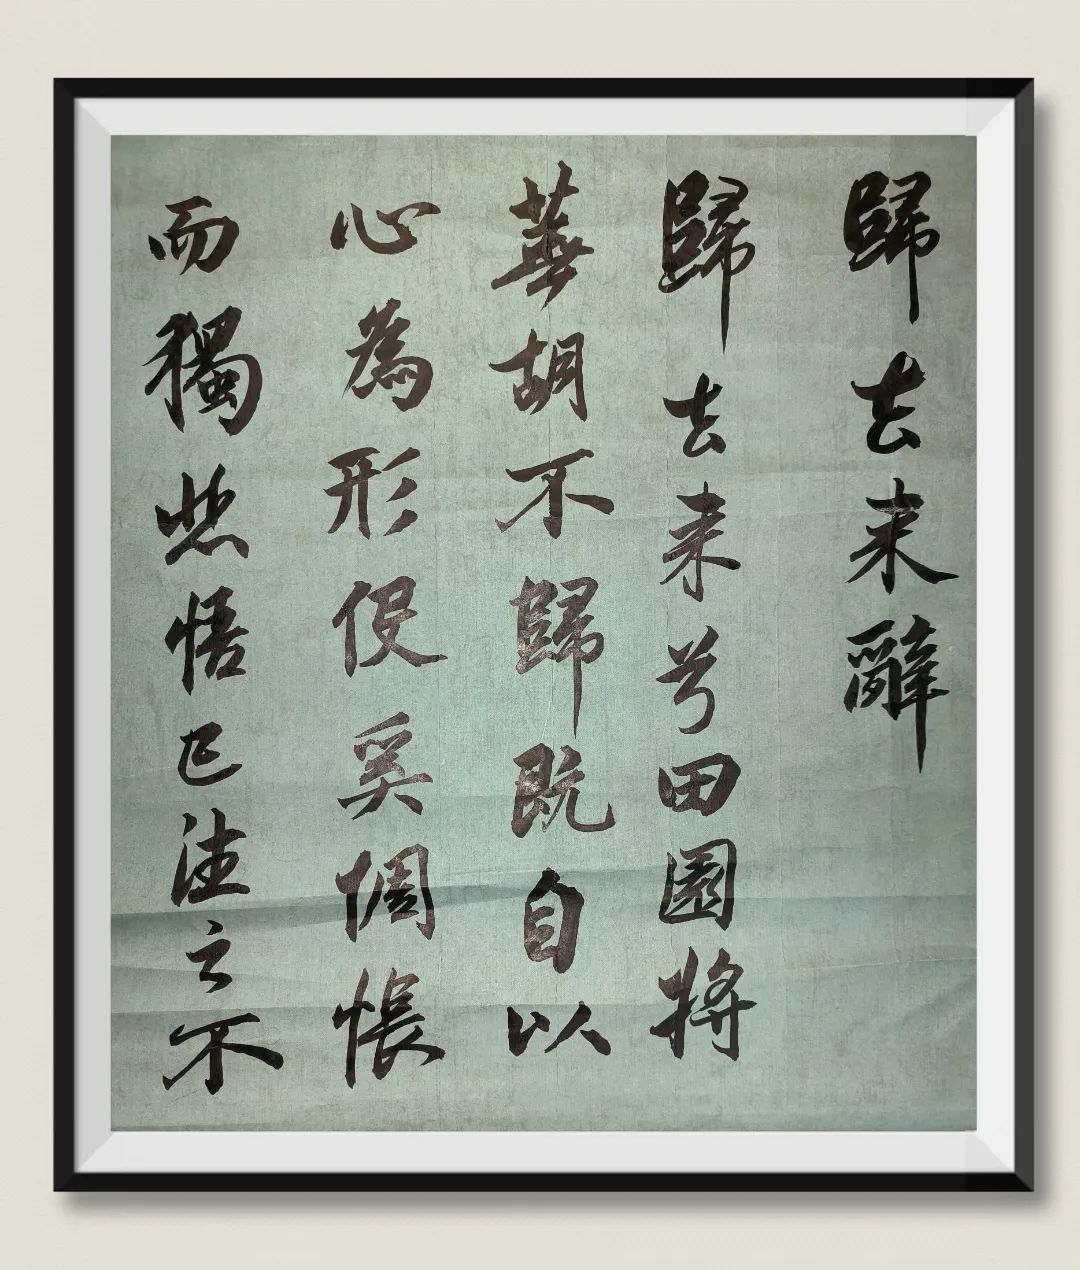 歸去来辭
歸去来兮田園將
蕪胡不歸既自以
心為形役奚惆悵
而獨悲悟已往之不